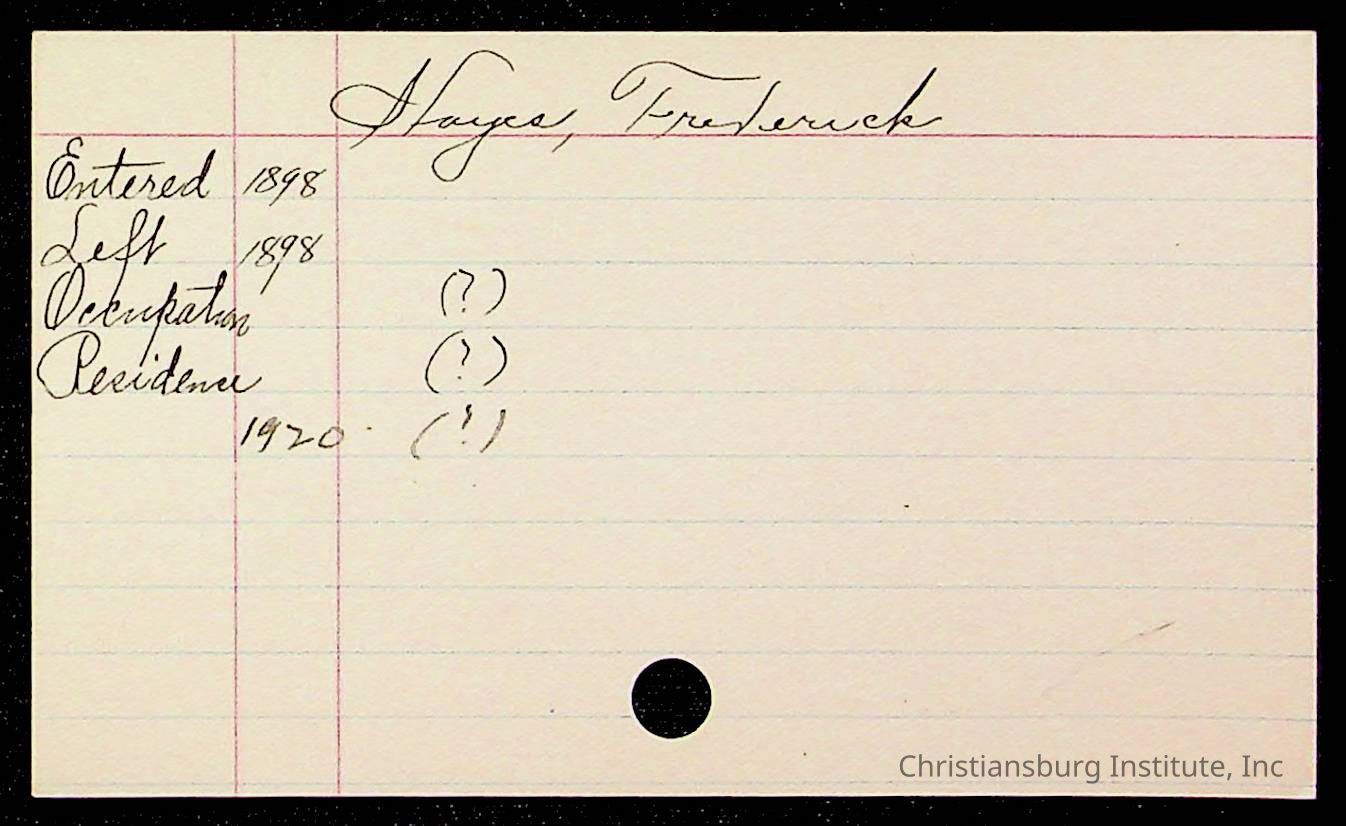 Hayes, Frederick
Entered 1898
Left 1898
Occupation (?)
Residence (?)
1920 (?)
Christiansburg Institute, Inc